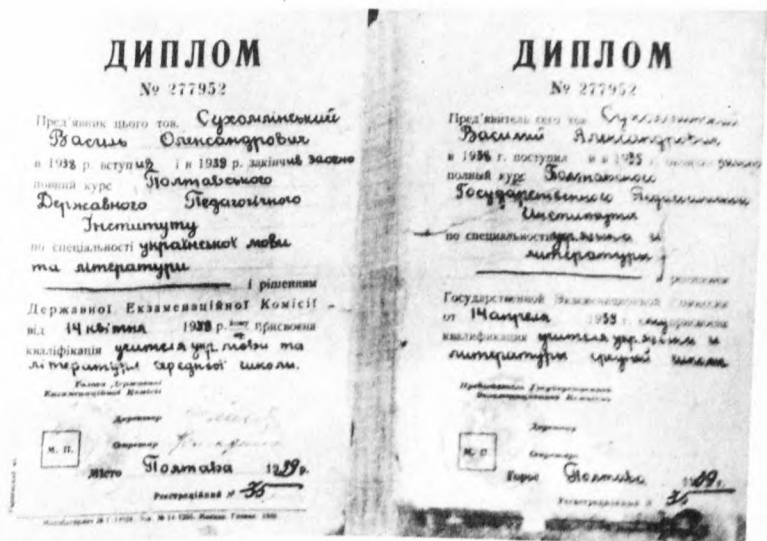 ДИПЛОМ
№ 277952
Пред'явник цього тов. Сухомлинський
Василь Олександрович
в 1938 р. вступив і в 1939 р. закінчив заочно
повний курс Полтавського
Державного Педагогічного
Інституту
по спеціальності української мови
та літератури
і рішенням
Державної Екзаменаційної Комісії
від 14 квітня 1939 р. йому присвоєна
кваліфікація учителя укр. мови та
літератури середньої школи.
Голова Державної
Екзаменаційної Комісії
Директор
Секретар
М. П.
Місто Полтава 1939 р.
Реєстраційний № 35
ДИПЛОМ
№ 277952
Пред'явитель сего тов. Сухомлинский
Василий Александрович
в 1938 г. поступил и в
полный курс Полтавского
Государственного Педагогического
Института
по специальности укр. языка и
литературы
и решением
Государственной Экзаменационной Комиссии
от 14 апреля г. ему присвоена
квалификация учителя укр. языка и
литературы средней школы
Председатель Государственной
Экзаменационной Комиссии
Директор
Секретарь
М. П.
Город Полтава 1939 г.
Регистрационный № 35